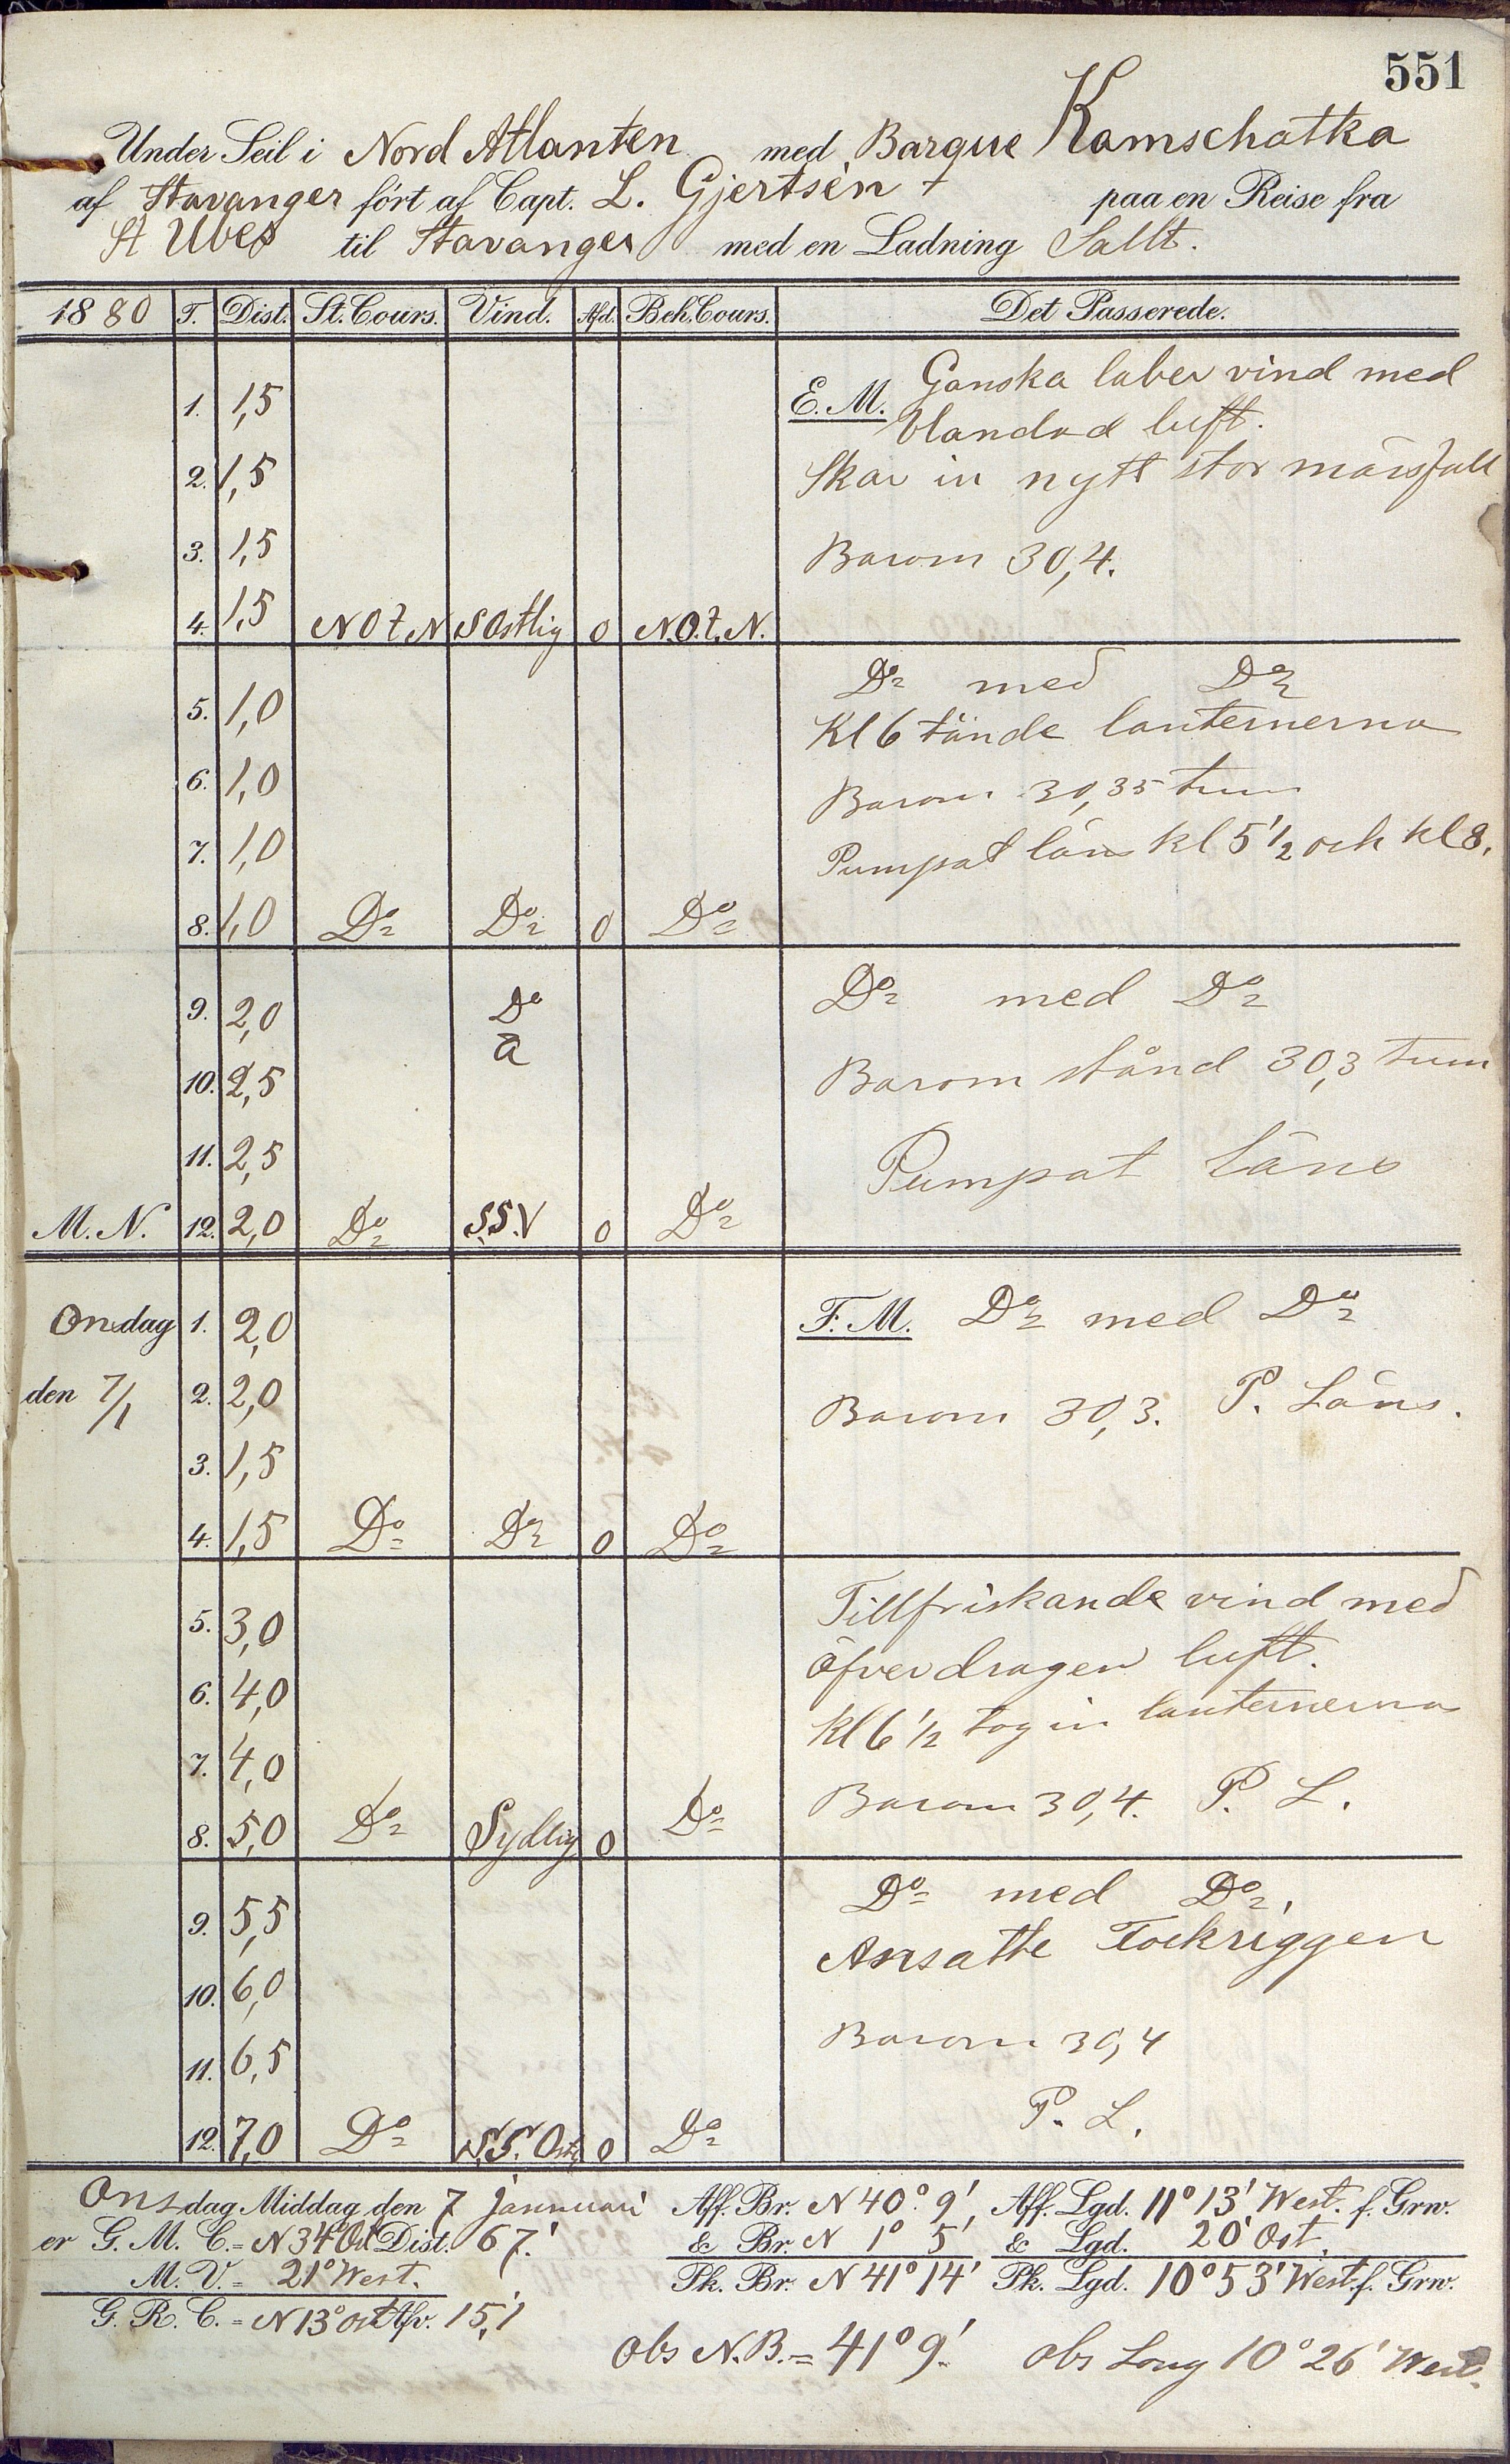 551
Under Seil i Nord Atlanten med Barque Kamschatka
af Stavanger ført af Capt. L. Gjertsen paa en Reise fra
St Ubes til Stavanger med en Ladning Sallt.
1880 T. Dist. St. Cours. Vind. Afd. Beh. Cours. Det Passerede.
E. M. Ganska laber vind med
1. 1,5 blandad luft.
2. 1,5 Skar in nytt stor märsfall
3. 1,5 Barom 30,4.
4. 1,5 NOt.N SOstlig 0 N.O.t.N.
Do med Do
5. 1,0 Kl 6 tände lanternerna
6. 1,0 Barom 30,35 tum
7. 1,0 Pumpat läns kl 5 1/2 och kl 8.
8. 1,0 Do Do 0 Do
9. 2,0 Do Do med Do
à
10. 2,5 Barom stånd 30,3 tum
11. 2,5 Pumpat läns
M. N. 12. 2,0 Do S.S.V 0 Do
Onsdag 1. 2,0 F. M. Do med Do
den 7/1 2. 2,0 Barom 30,3. P. Läns.
3. 1,5
4. 1,5 Do Do 0 Do
Tillfriskande vind med
5. 3,0 öfverdragen luft.
6. 4,0 Kl 6 1/2 tog in lanternerna
7. 4,0 Barom 30,4. P. L.
8. 5,0 Do Sydlig 0 Do
Do med Do.
9. 5,5 Ansatte Fockriggen
10. 6,0
11. 6,5 Barom 30,4
P. L.
12. 7,0 Do S.S. Ost 0 Do
Onsdag Middag den 7 Januari Aff. Br. N 40° 9', Aff. Lgd. 11° 13' West. f. Grw.
er G. M. C. = N 34° Ost Dist. 67.' & Br. N 1° 5' & Lgd. 20' Ost.
M. V. = 21° West. Pk. Br. N 41° 14' Pk. Lgd. 10° 53' West. f. Grw.
G. R. C. = N 13° Ost Afv. 15,'1
Obs N.B. = 41° 9'. Obs Long 10° 26' West.